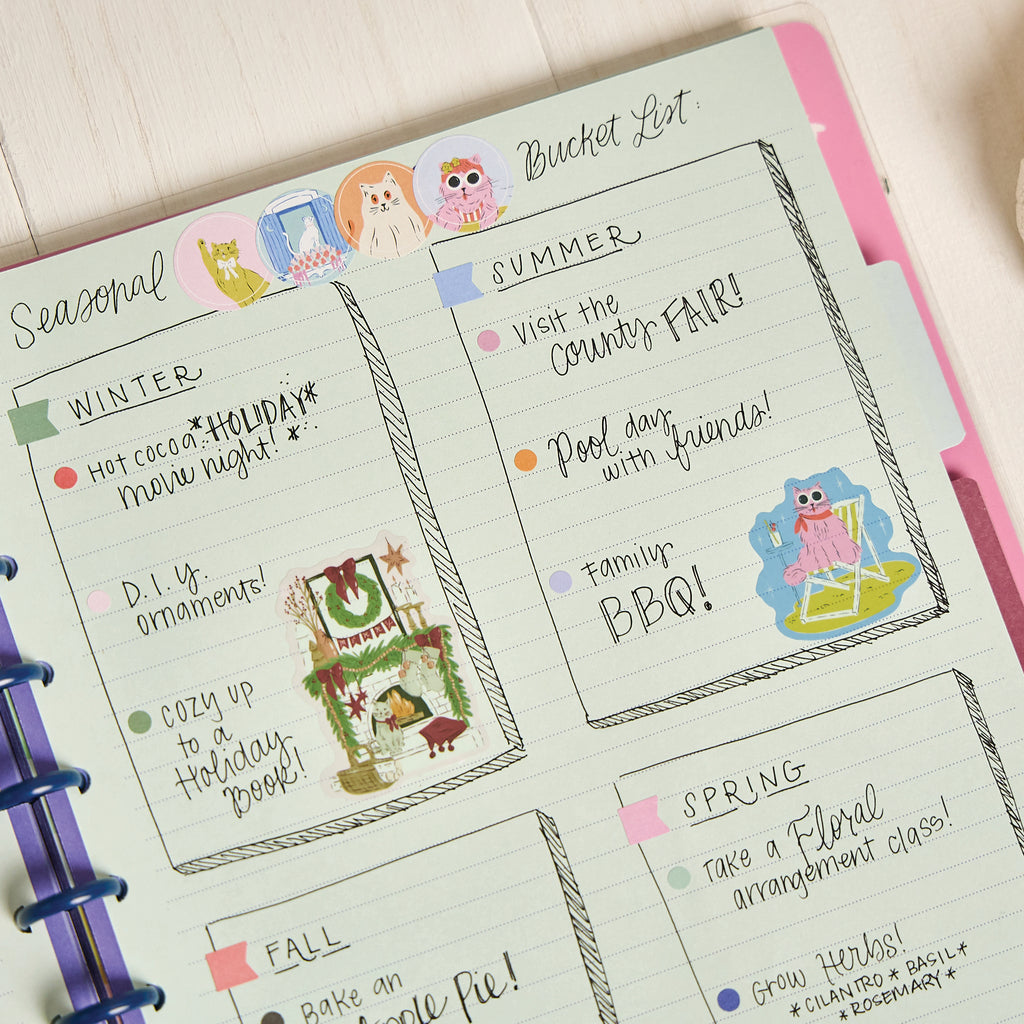 Seasonal Bucket List:
WINTER
HOT COCOA *HOLIDAY*
movie night! *
D.I.Y.
ornaments!
COZY UP
to a
Holiday
Book!
SUMMER
VISIT the
county FAIR!
Pool day
with friends!
Family
BBQ!
FALL
Bake an
Apple Pie!
SPRING
TAKE A Floral
arrangement class!
GROW Herbs!
*CILANTRO * BASIL*
*ROSEMARY*